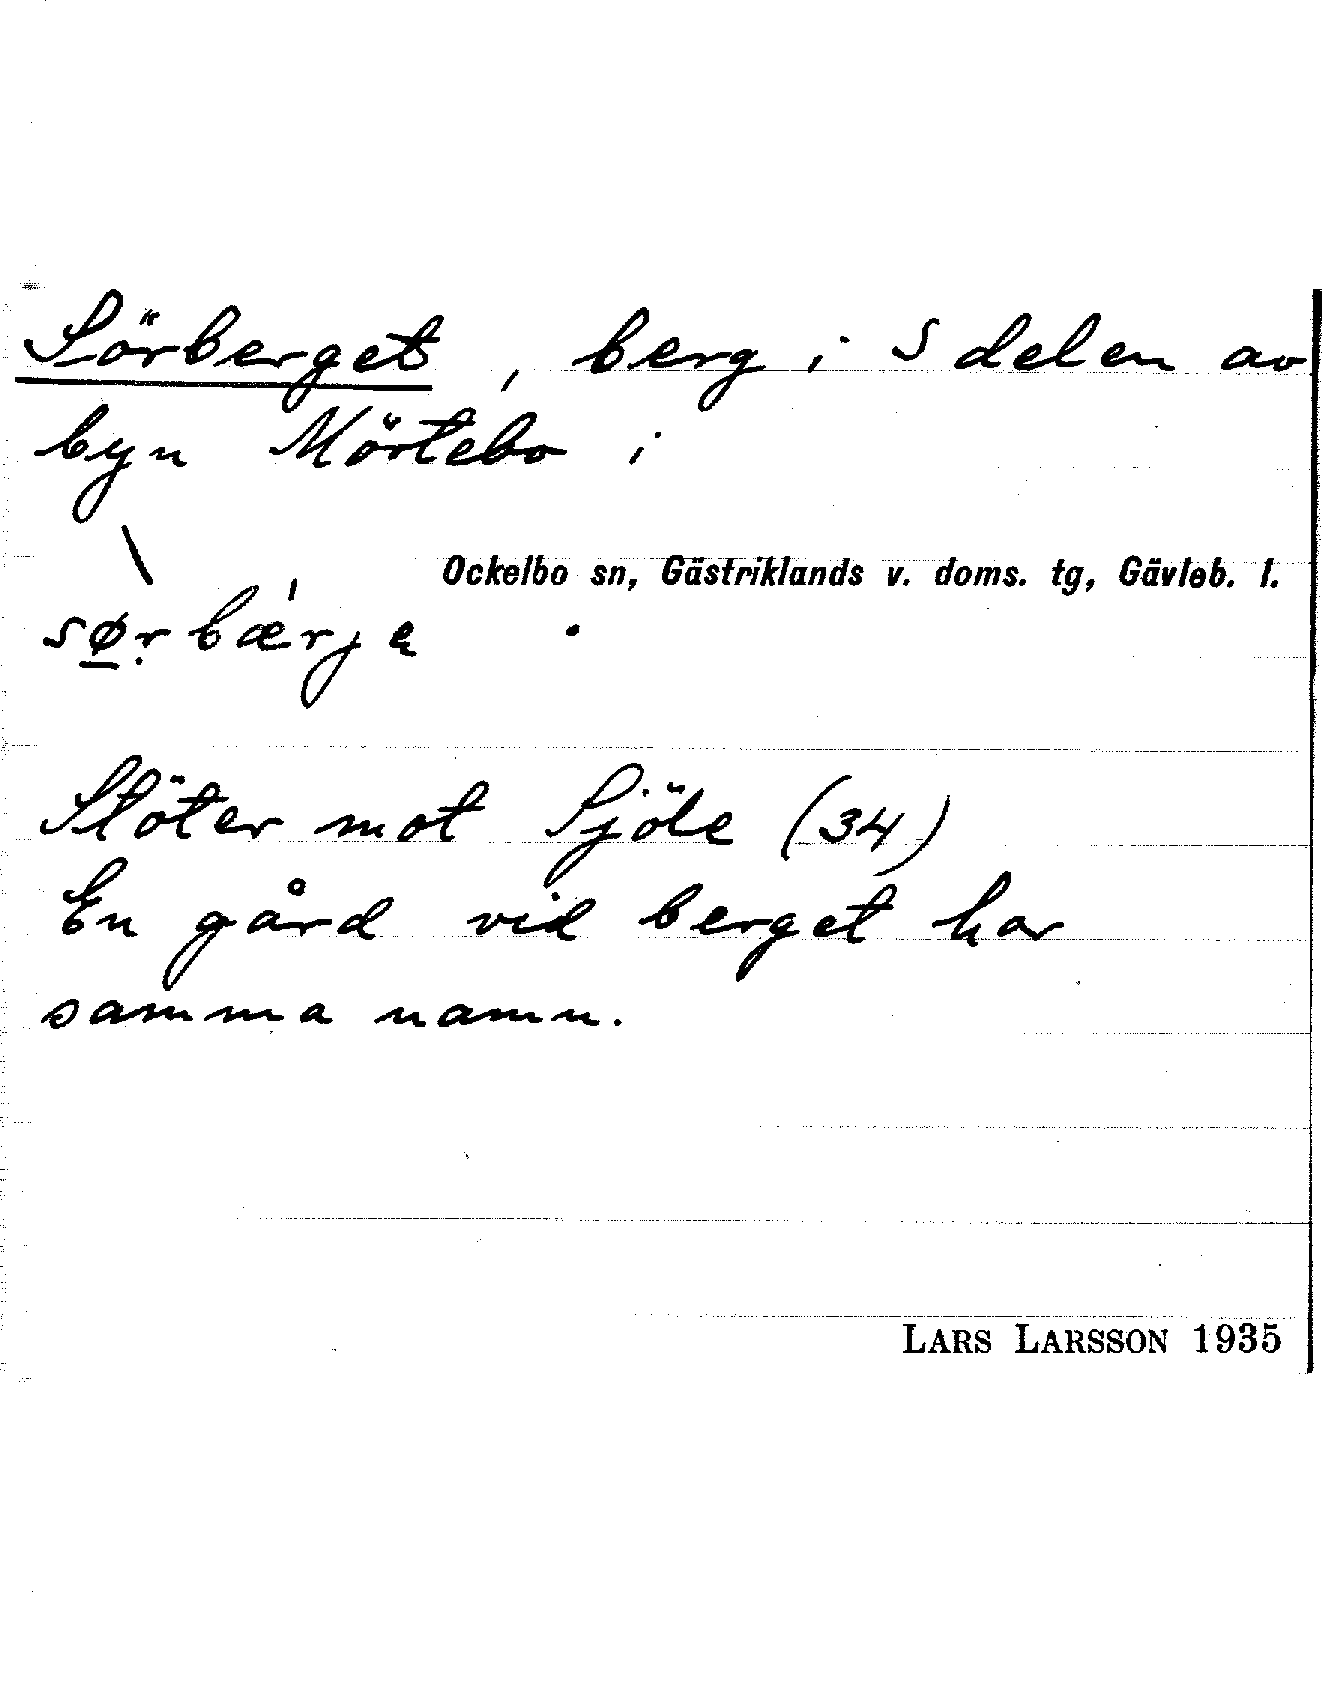 Sörberget, berg i S delen av
byn Mörtebo i
Ockelbo sn, Gästriklands v. doms. tg, Gävleb. l.
sø̱ṛbærję
Stöter mot Sjöle (34)
En gård vid berget har
samma namn.
LARS LARSSON 1935